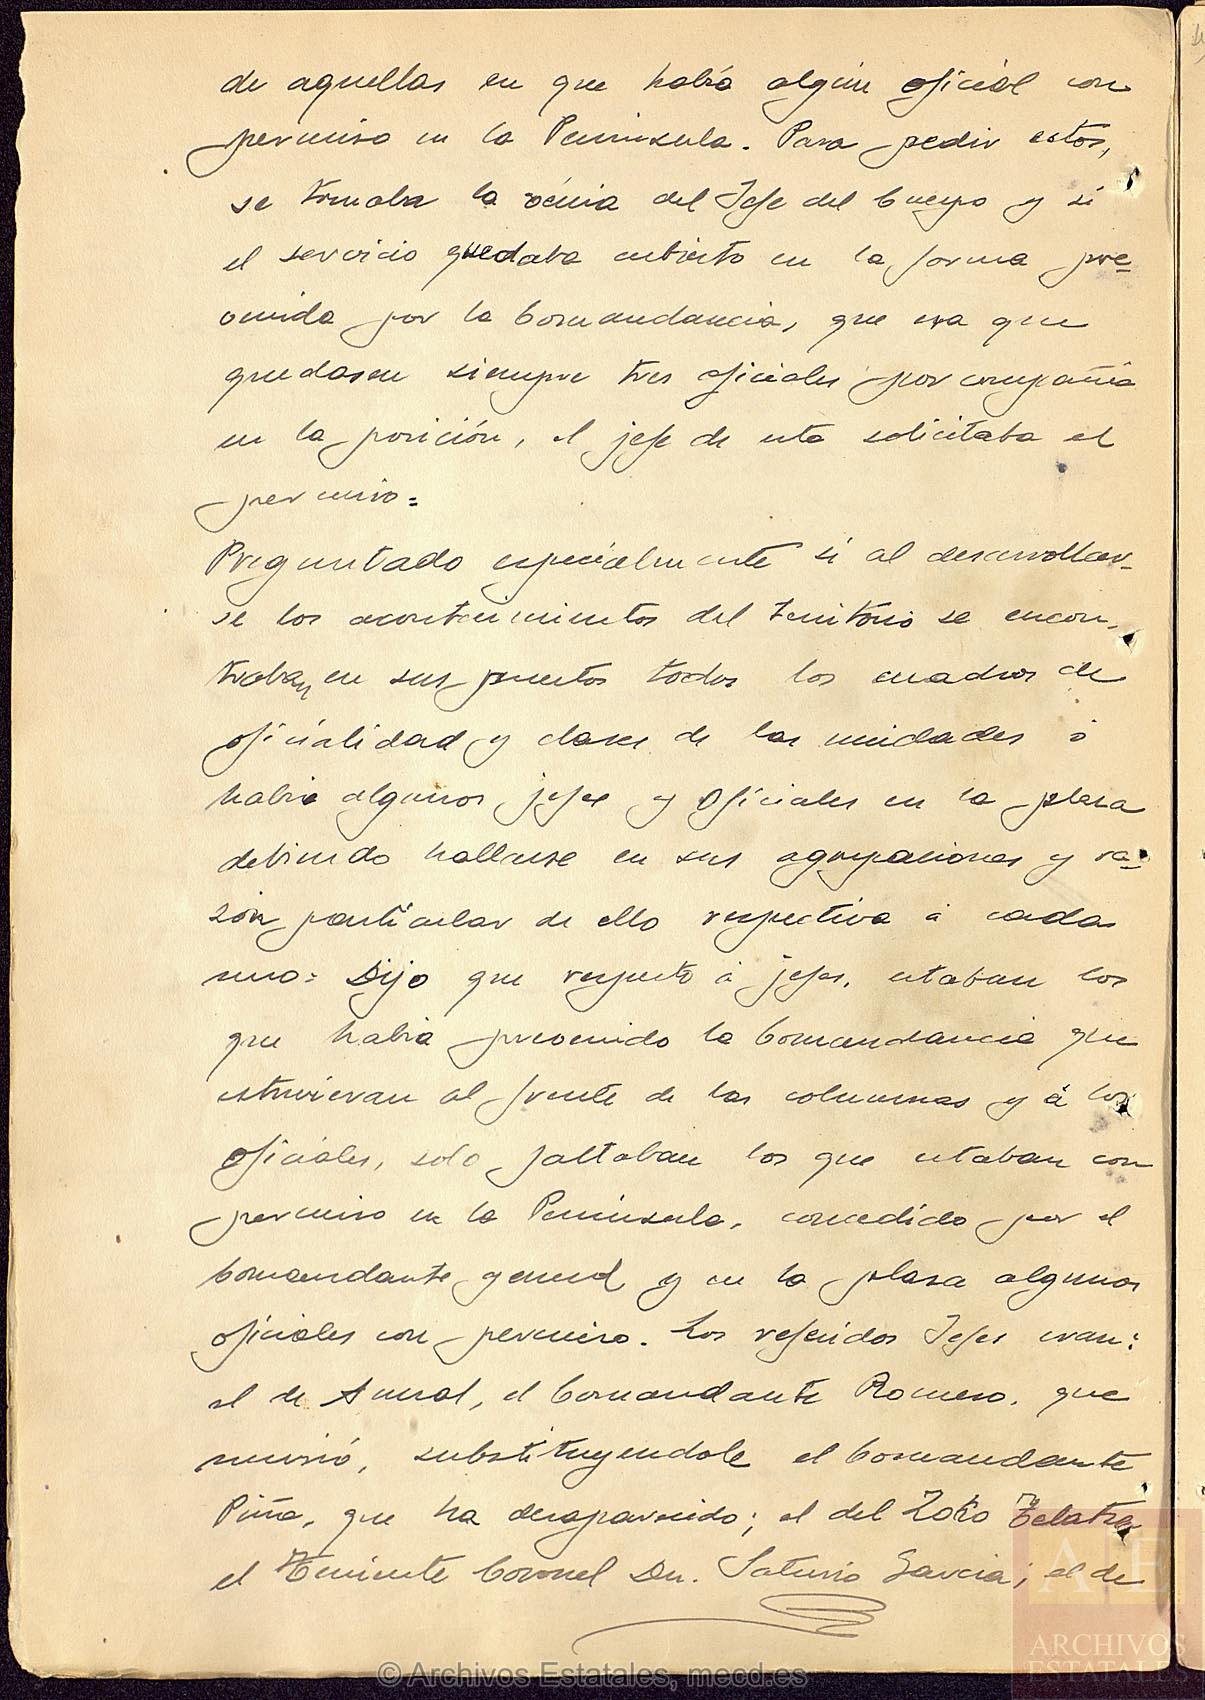 de aquellas en que había algún oficial con
permiso en la Peninsula. Para pedir estos,
se tomaba la vénia del Jefe del Cuerpo y si
el servicio quedaba cubierto en la forma pre-
venida por la Comandancia, que era que
quedasen siempre tres oficiales por compañia
en la posición, el jefe de esta solicitaba el
permiso=
Preguntado especialmente si al desarrollar-
se los acontecimientos del territorio se encon-
traban en sus puestos todos los cuadros de
oficialidad y clases de las unidades ó
habia algunos jefes y Oficiales en la plaza
debiendo hallarse en sus agrupaciones y ra-
zón particular de ello respectiva á cada
uno= Dijo que respecto á jefes, estaban los
que habia prevenido la Comandancia que
estuvieran al frente de las columnas y á los
oficiales, solo faltaban los que estaban con
permiso en la Peninsula, concedido por el
Comandante general y en la plaza algunos
oficiales con permiso. Los referidos Jefes eran:
el de Anual, el Comandante Romero, que
murió, substituyendole el Comandante
Piña, que ha desaparecido; el del Zoko Telatza
el Teniente Coronel Dn. Saturio Garcia; el de
© Archivos Estatales, mecd.es
AE
ARCHIVOS
ESTATALES